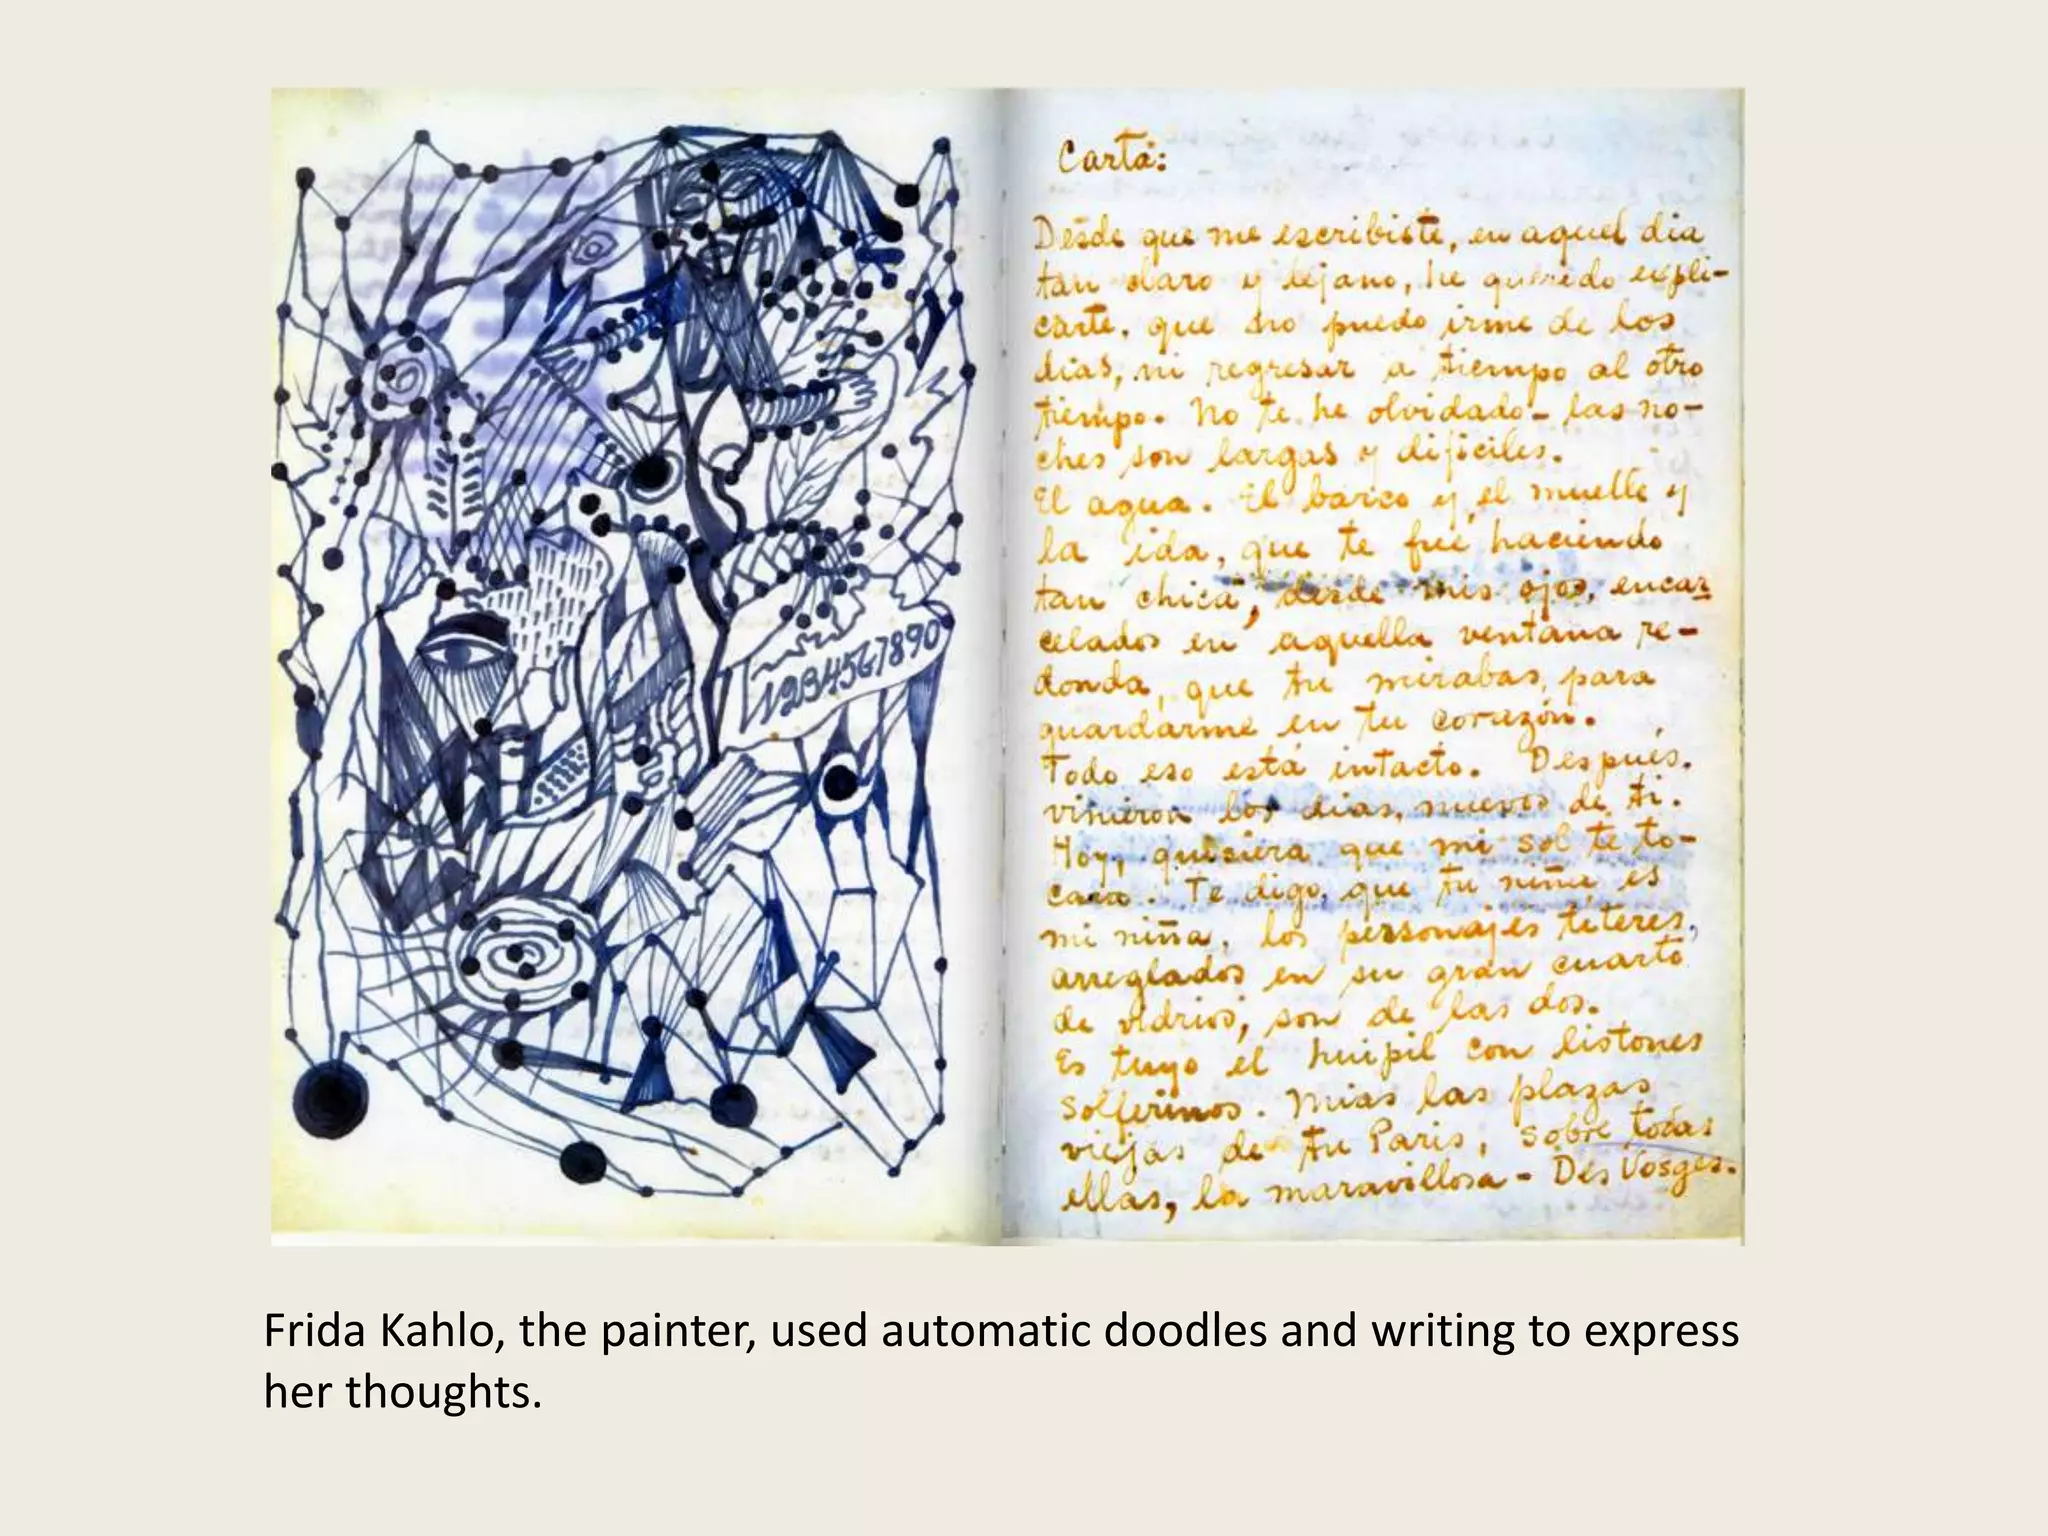 1234567890
Carta:
Desde que me escribiste, en aquel dia
tan claro y lejano, he querido expli-
carte, que no puedo irme de los
dias, ni regresar a tiempo al otro
tiempo. No te he olvidado - las no-
ches son largas y dificiles.
El agua. El barco y el muelle y
la ida, que te fué haciendo
tan chica, desde mis ojos, encar
celados en aquella ventana re-
donda, que tu mirabas para
guardarme en tu corazón.
Todo eso está intacto. Después,
vinieron los dias, nuevos de ti.
Hoy, quisiera que mi sol te to-
cara. Te digo, que tu niña es
mi niña, los personajes títeres,
arreglados en su gran cuarto
de vidrios, son de las dos.
Es tuyo el huipil con listones
solferinos. Mias las plazas
viejas de tu Paris, sobre todas
ellas, la maravillosa - Des Vosges.
Frida Kahlo, the painter, used automatic doodles and writing to express
her thoughts.